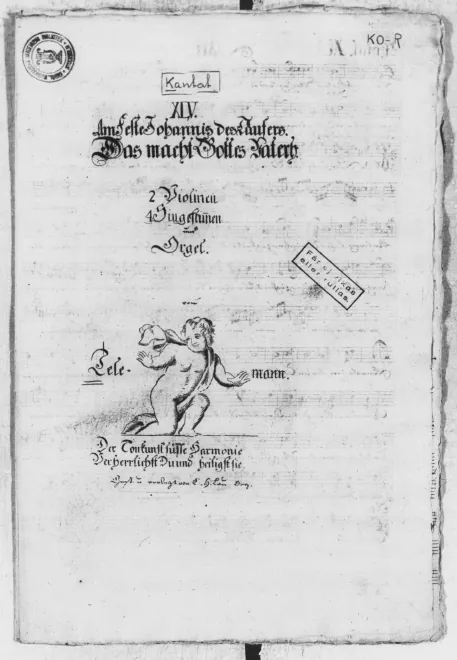 KO-R
Kantat
XLV.
Am Feste Johannis des Täufers.
Das macht Gottes Vaterh
2 Violinen
4 Singestimen
und
Orgel.
Får ej vikas
eller rullas.
von
Tele- mann.
Der Tonkunst süsse Harmonie
Verherrlichst Du und heiligst sie